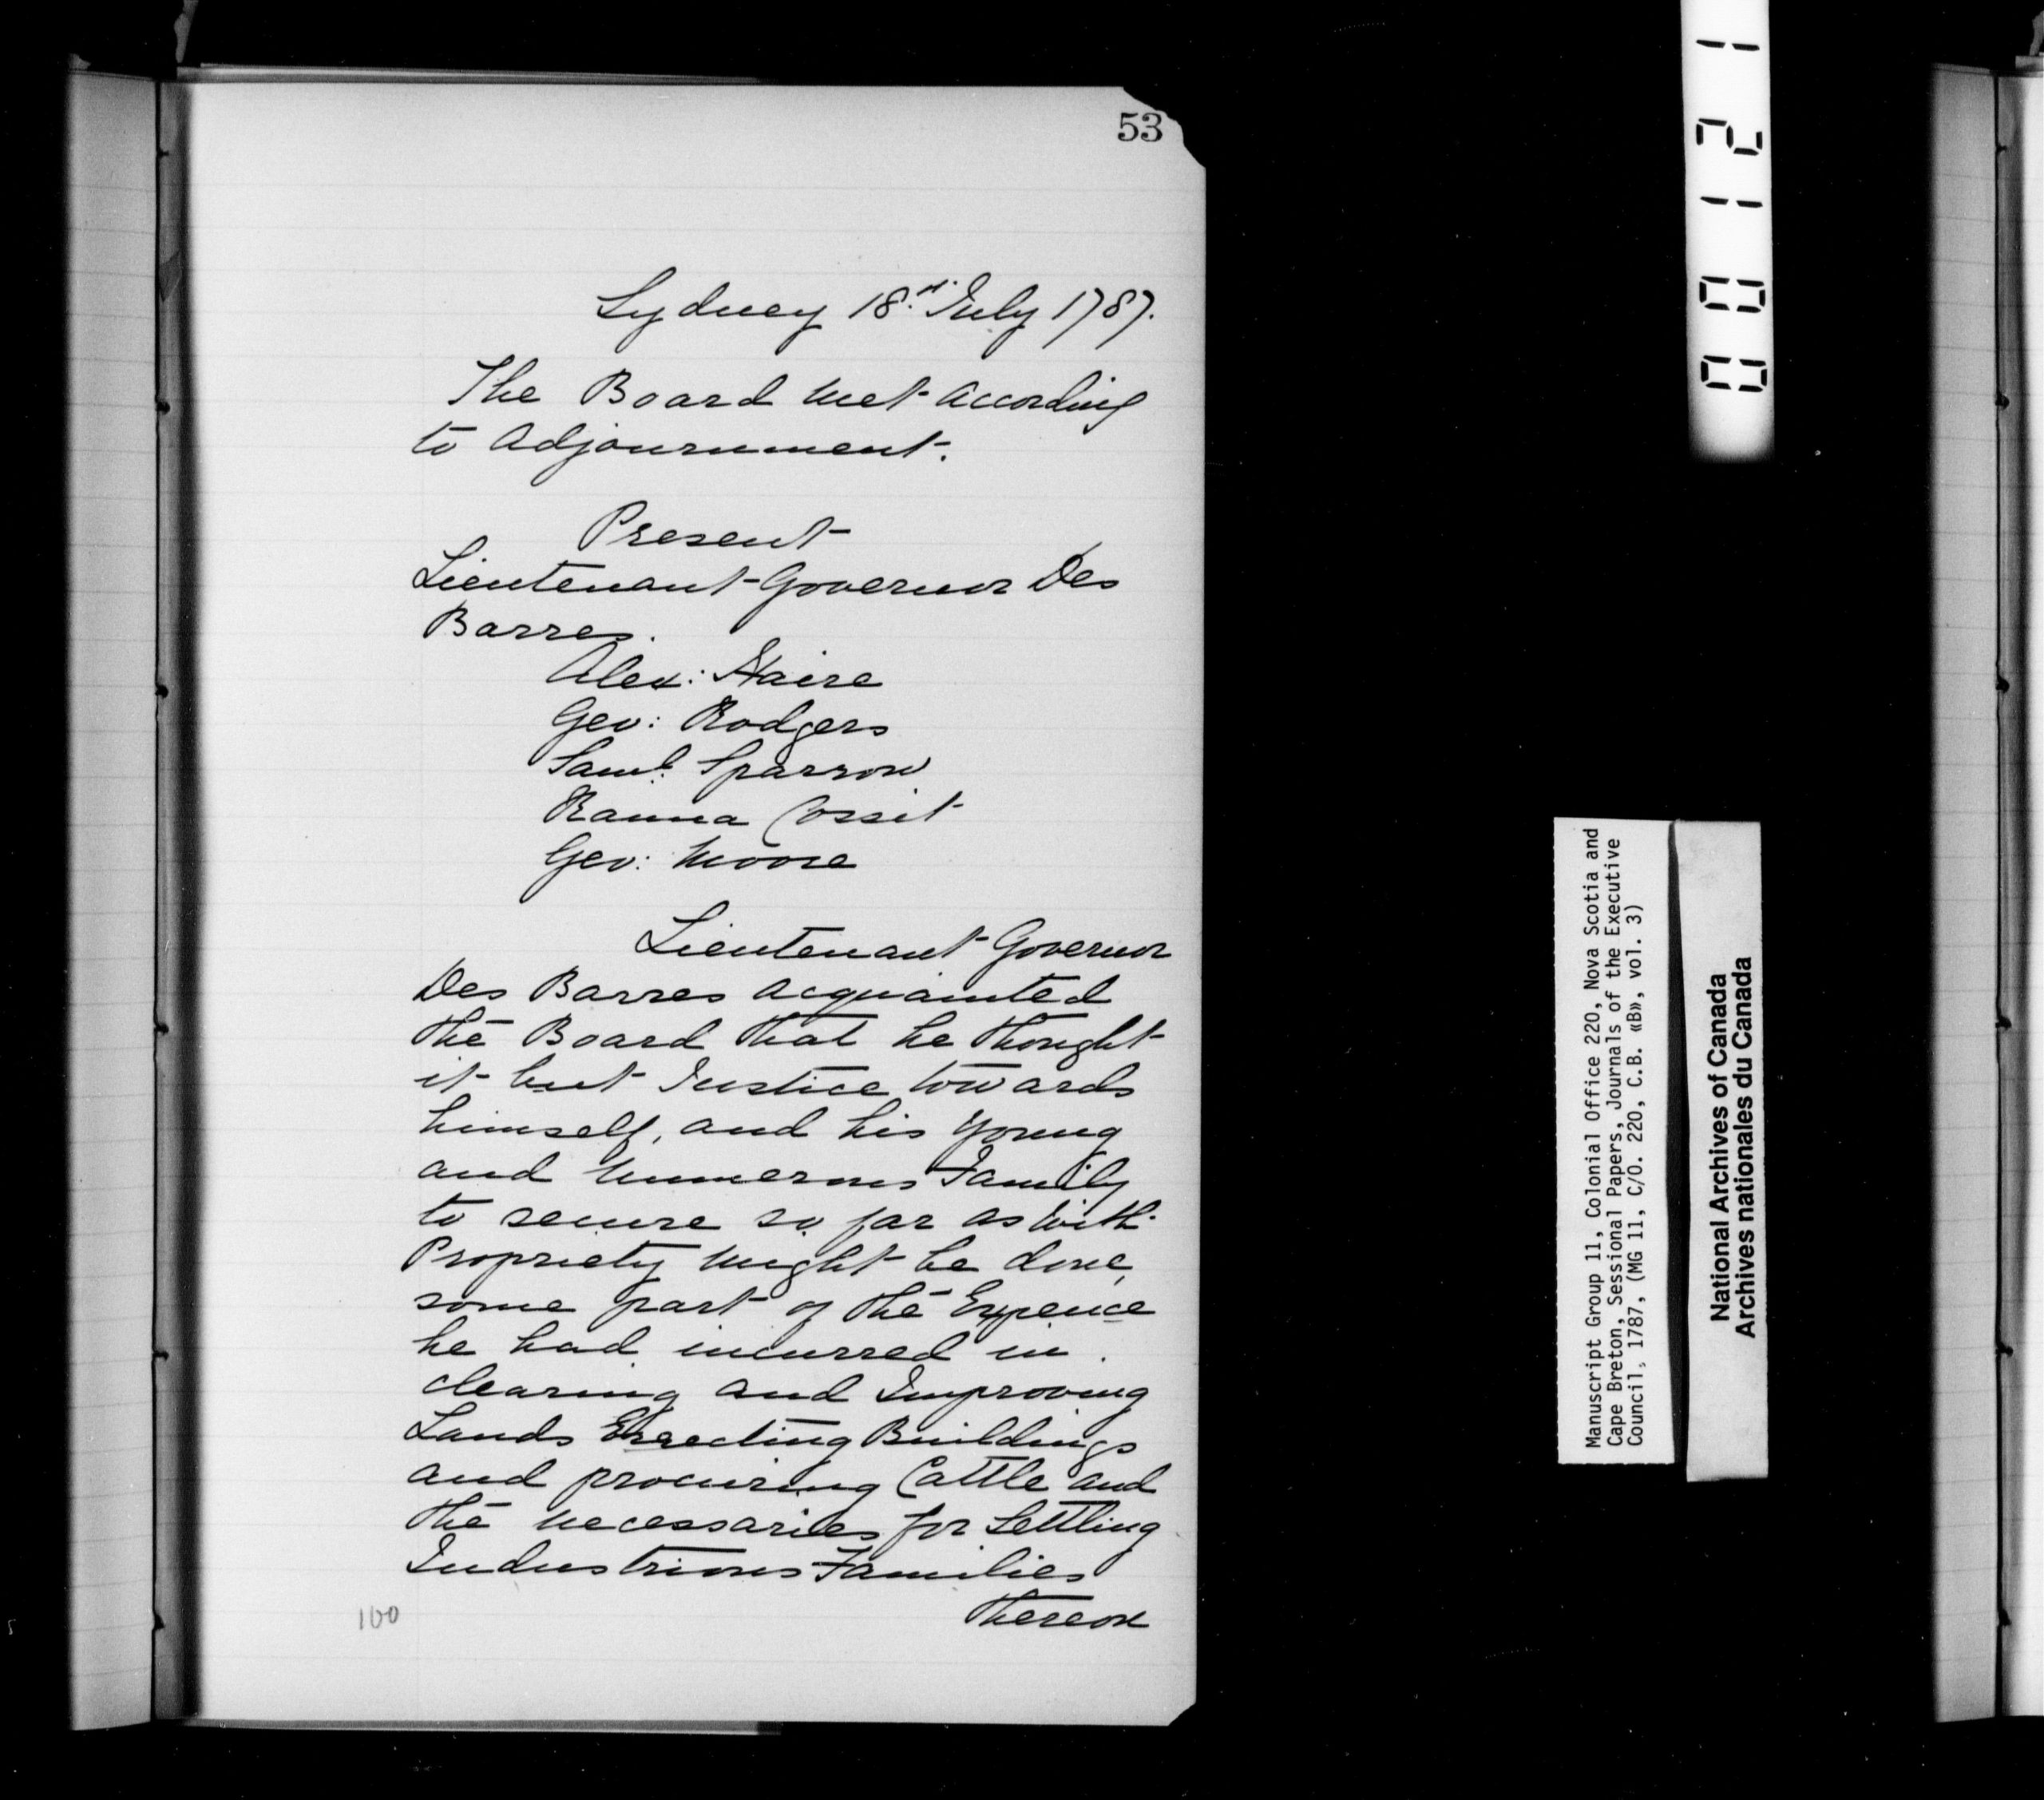 53
Sydney 18.th July 1787.
The Board met according
to Adjournment.
Present
Lieutenant-Governor Des
Barres.
Alex: Haire
Geo: Rodgers
Saml. Sparrow
Ranna Cossit
Geo: Moore
Lieutenant-Governor
Des Barres acquainted
the Board that he thought
it but Justice towards
himself, and his young
and numerous Family
to secure so far as with
Propriety might be done,
some part of the Expence
he had incurred in
clearing and Improving
Lands Errecting Buildings
and procuring Cattle and
the necessaries for Settling
Industrious Families
thereon
100
00121
Manuscript Group 11, Colonial Office 220, Nova Scotia and
Cape Breton, Sessional Papers, Journals of the Executive
Council, 1787, (MG 11, C/O. 220, C.B. «B», vol. 3)
National Archives of Canada
Archives nationales du Canada